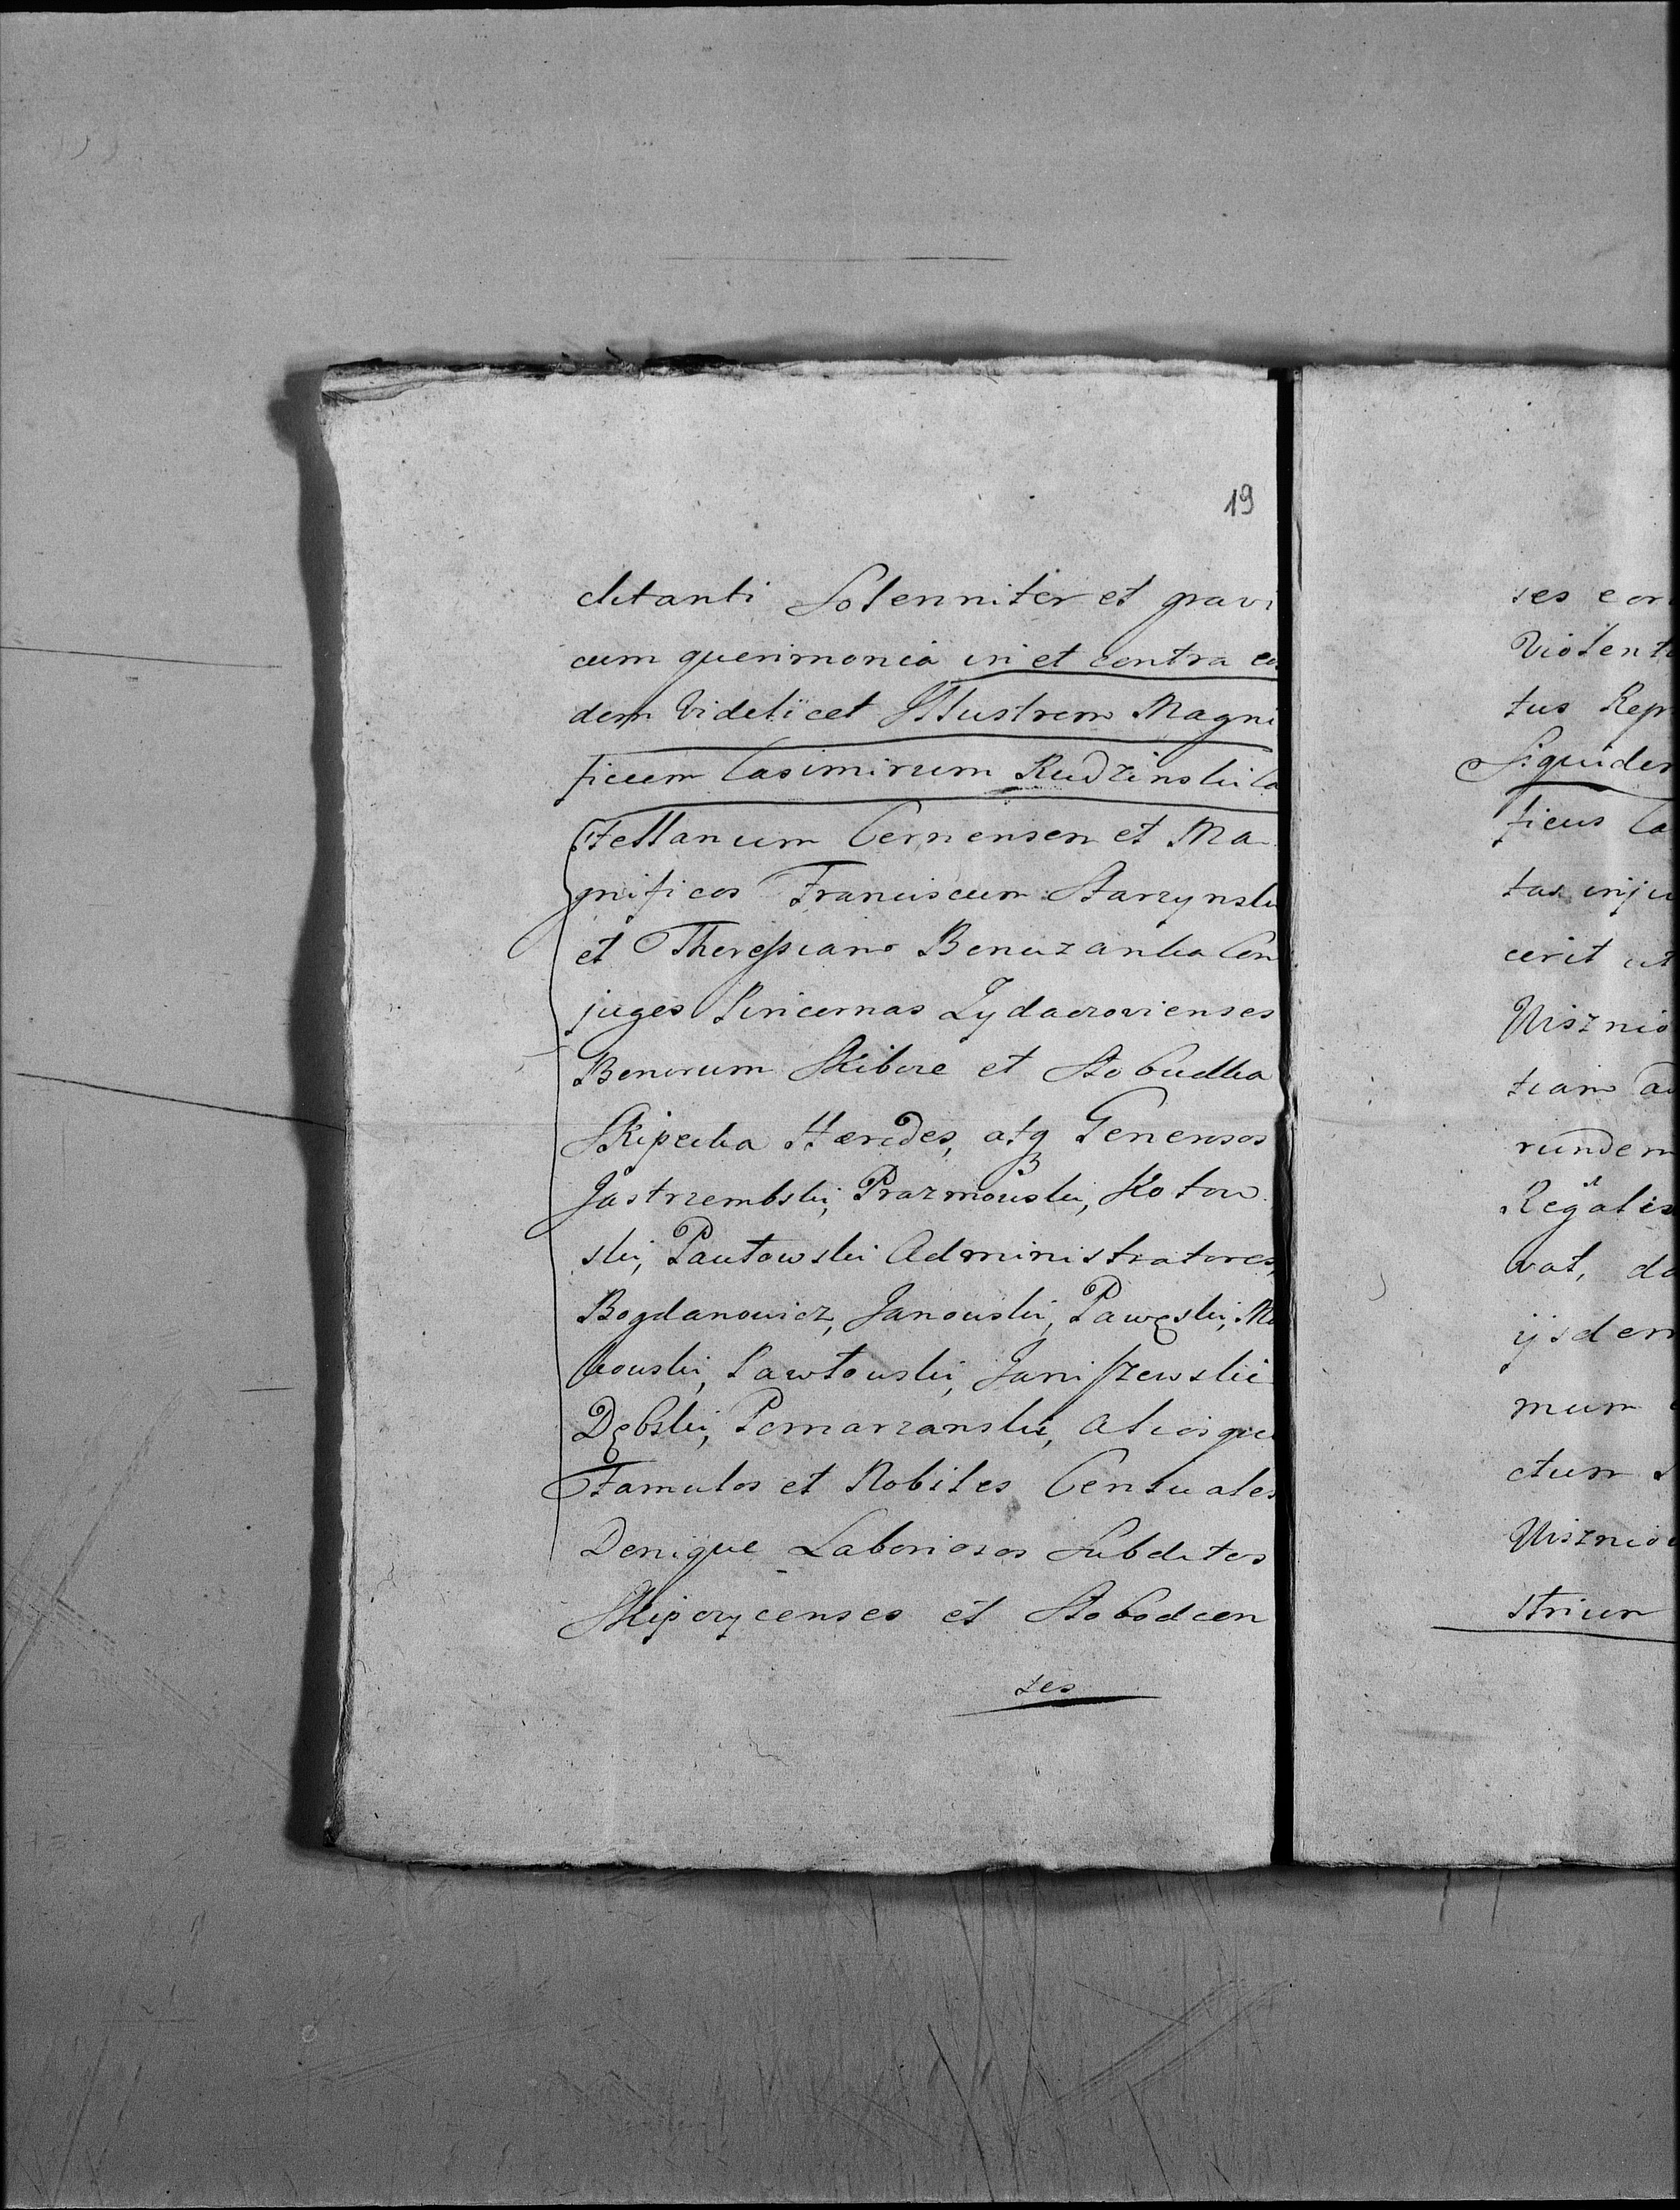 19
ditanti Solenniter et gravi
cum querimonia in et contra eo
dem Videlicet Illustrem Magni
ficum Casimirum Rudzinski Ca
stellanum Cernensem et Ma
gnificos Franciscum Starzynski
et Theressiam Benuzanka Con
juges Pincernas Zydaczovienses
Bonorum Skibore et Slobudka
Skipecka Hæredes, atq Generosos
Jastrzembski, Prazmouski, Kotow
ski, Pautowski Administratores,
Bogdanowicz, Janouski, Pawęski, Ma
kouski, Pawłouski, Janiszewskii
Dębski, Pomarzanskii, Aliosque
Famulos et Nobiles Censuales
Denique Laboriosos Subditos
Skiporycenses et Slobodcen
ses
ses
Violent
tus Rep
Siquidem
ficus Ca
tas inju
cerit ut
Wisznio
tiam
rundem
Regalis
vat, do
ijsdem
mum
ctum
Wisznio
strium